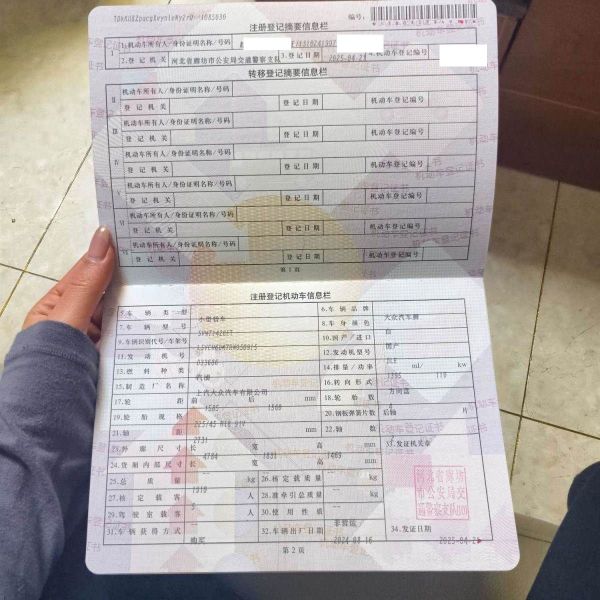 注册登记摘要信息栏
编号:
1.机动车所有人/身份证明名称/号码
2.登记机关 河北省廊坊市公安局交通警察支队 3.登记日期 2025-04-21
转移登记摘要信息栏
Ⅱ 机动车所有人/身份证明名称/号码
登记机关 登记日期 机动车登记编号
Ⅲ 机动车所有人/身份证明名称/号码
登记机关 登记日期 机动车登记编号
Ⅳ 机动车所有人/身份证明名称/号码
登记机关 登记日期 机动车登记编号
Ⅴ 机动车所有人/身份证明名称/号码
登记机关 登记日期 机动车登记编号
Ⅵ 机动车所有人/身份证明名称/号码
登记机关 登记日期 机动车登记编号
Ⅶ 机动车所有人/身份证明名称/号码
登记机关 登记日期 机动车登记编号
第1页
注册登记机动车信息栏
5.车辆类型 小型轿车 6.车辆品牌 大众汽车牌
7.车辆型号 8.车身颜色 白
9.车辆识别代号/车架号 10.国产/进口 国产
11.发动机号 033686 12.发动机型号
13.燃料种类 汽油 14.排量/功率 1395 ml/ 110 kw
15.制造厂名称 上汽大众汽车有限公司 16.转向形式 方向盘
17.轮距 前 1585 后 1568 mm 18.轮胎数
19.轮胎规格 225/45 R18 91V 20.钢板弹簧片数 后轴 片
21.轴距 2731 mm 22.轴数 33.发证机关章
23.外廓尺寸 长 4784 宽 1831 高 1469 mm
24.货厢内部尺寸 长 宽 高 mm
25.总质量 kg 26.核定载质量 kg
27.核定载客 5 人 28.准牵引总质量 kg
29.驾驶室载客 人 30.使用性质 非营运
31.车辆获得方式 购买 32.车辆出厂日期 2024-08-16 34.发证日期 2025-04-21
河北省廊坊
市公安局交
通警察支队
第2页